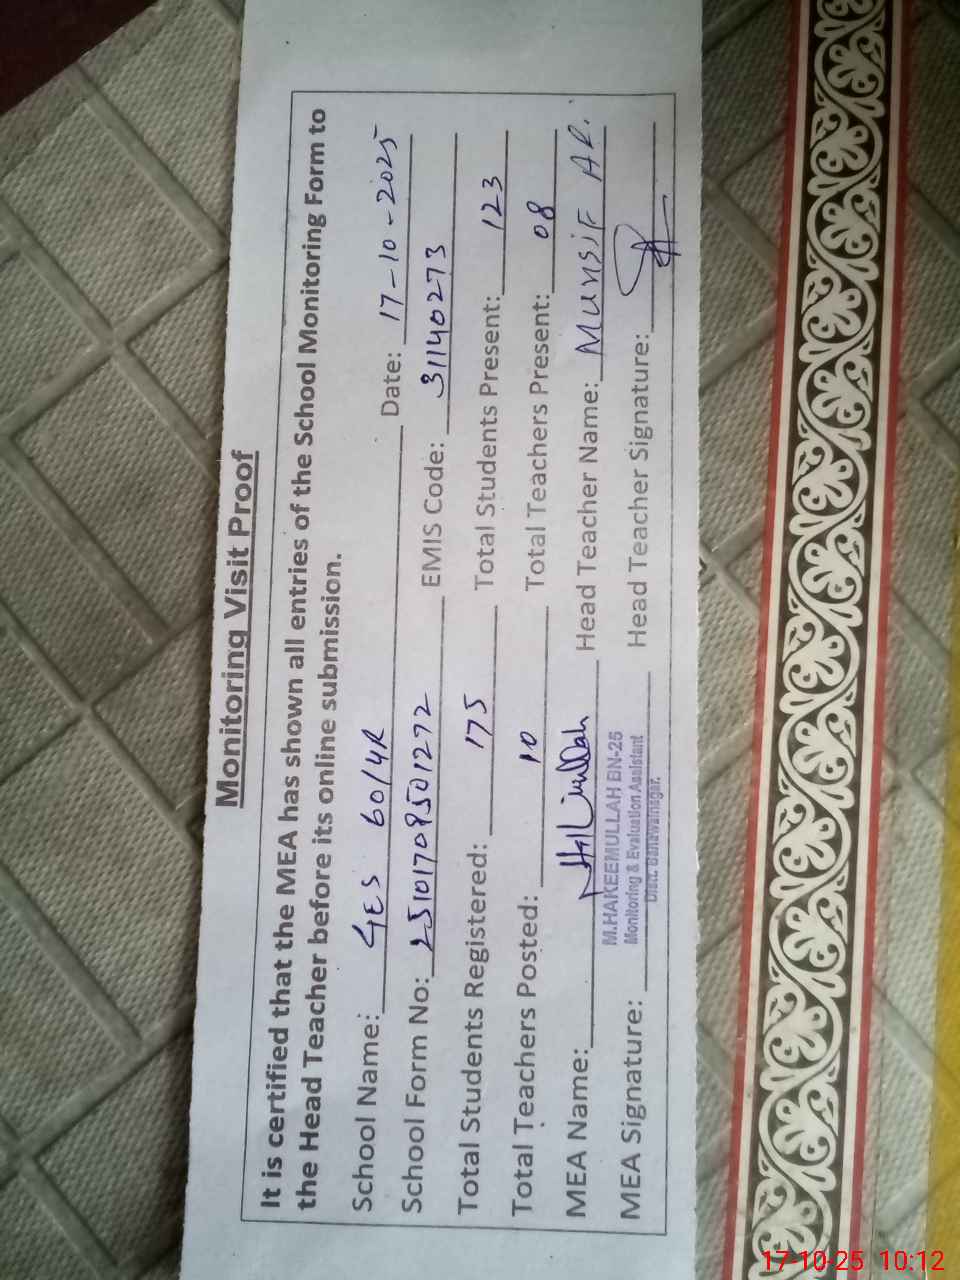 Monitoring Visit Proof
It is certified that the MEA has shown all entries of the School Monitoring Form to
the Head Teacher before its online submission.
School Name: GES 60/4R Date: 17-10-2025
School Form No: 25101709501272 EMIS Code: 31140273
Total Students Registered: 175 Total Students Present: 123
Total Teachers Posted: 10 Total Teachers Present: 08
MEA Name: Head Teacher Name: Munsif AR.
M.HAKEEMULLAH BN-25
MEA Signature: Monitoring & Evaluation Assistant Head Teacher Signature:
Distt. Bahawalnagar.
17-10-25 10:12